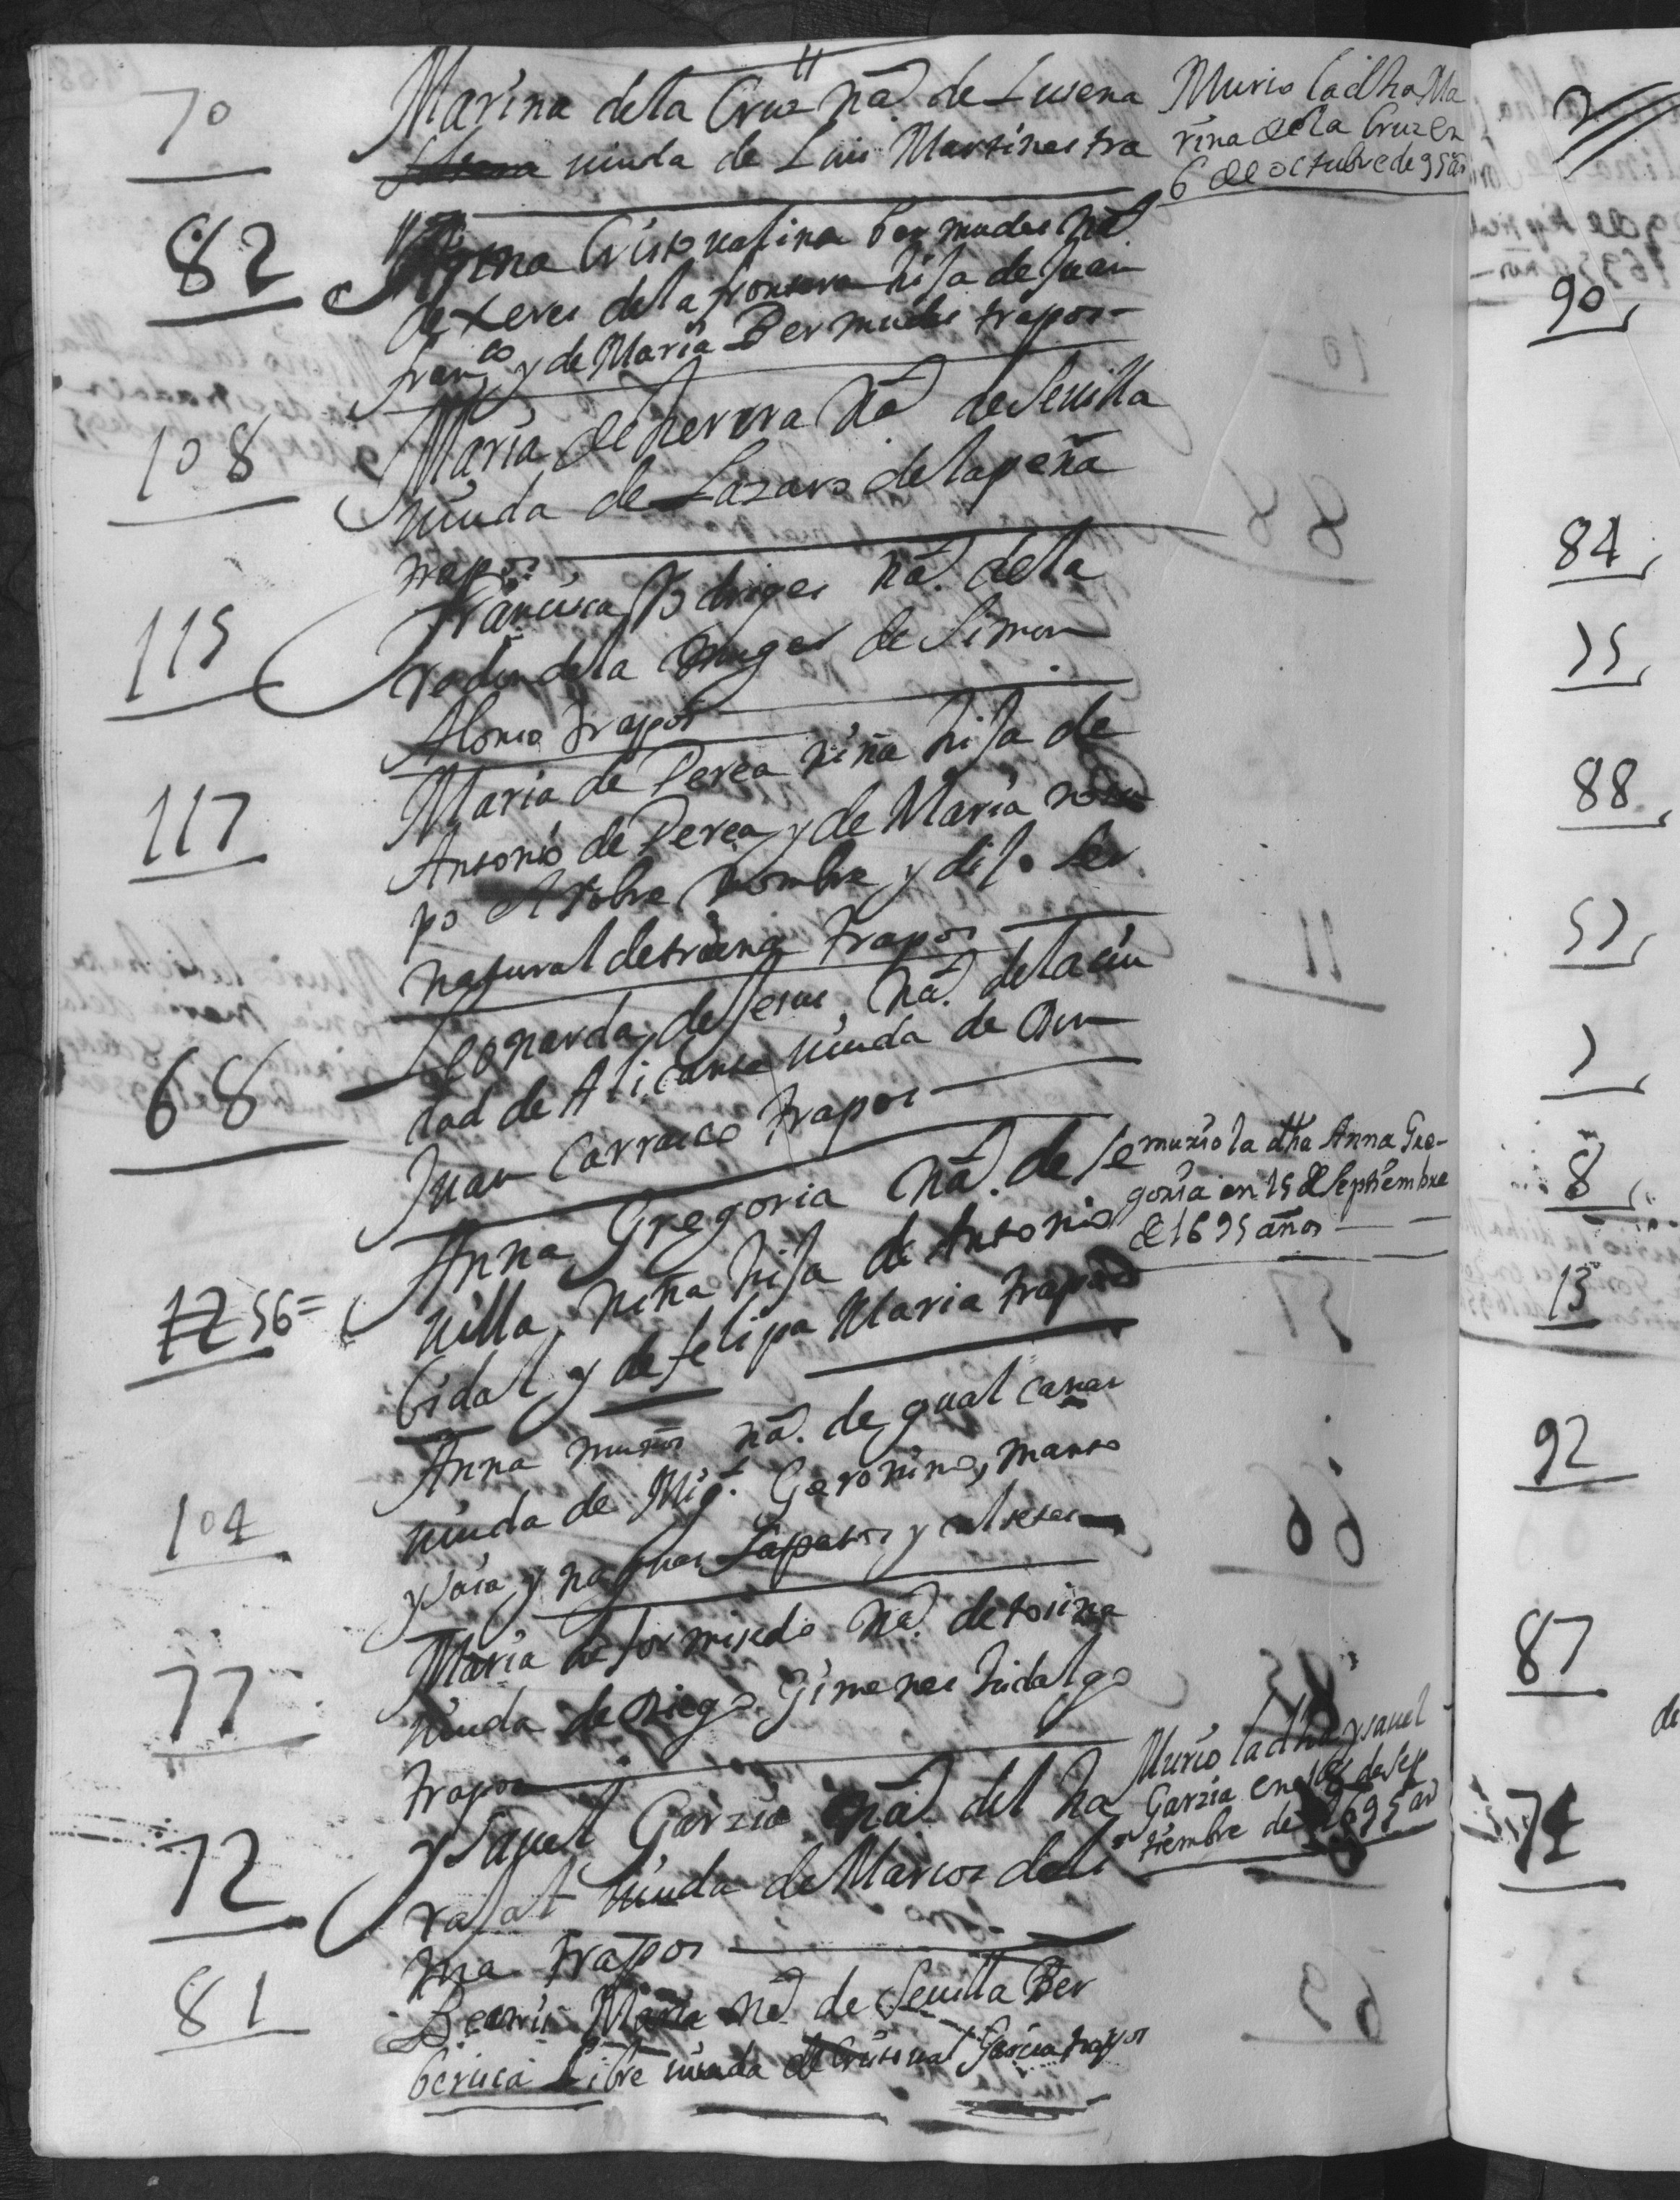 70
Marina de la Cruz na.l de Lusena
viuda de Luis Martines tra
Murio la dha Ma
rina de la Cruz en
6 de octubre de 95 as
82
Cristovalina Bermudes na.l
de Xeres de la frontera hija de Juan
fran.co y de Maria Bermudes trapos
108
Maria de herrera na.l de Sevilla
viuda de Lazaro de la peña
trapos
115
francisca Rodriges na.l de la
redondela muger de Simon
Alonso trapos
117
Maria de Perea niña hija de
Antonio de Perea y de Maria no su
po el sobre nombre y dijo ser
natural de triana trapos
68
Leonarda de Jesus na.l de la ciu
dad de Alicante viuda de
Juan Carrasco trapos
12 56=
Anna Gregoria na.l de Se
villa niña hija de Antonio
Vidal y de felipa Maria trapos
murio la dha Anna Gre-
goria en 15 de Septiembre
de 1695 años
104
Anna muños na.l de gual canal
viuda de Mig.l Geronimo, manto
y saia y naguas sapatos y calsetas
77
Maria de formisedo na.l de tosina
viuda de Diego Gimenes hidalgo
trapos
72
Ysavel Garzia na.l del ha
rahal viuda de Marcos de
na trapos
Murio la dha ysavel
Garzia en de Sep
tiembre de 1695 as
81
Beatris Maria na.l de Sevilla Ber
berisca Libre viuda de Cristoval Garcia trapos
90
84
75
88
57
7
8
13
92
87
de
74